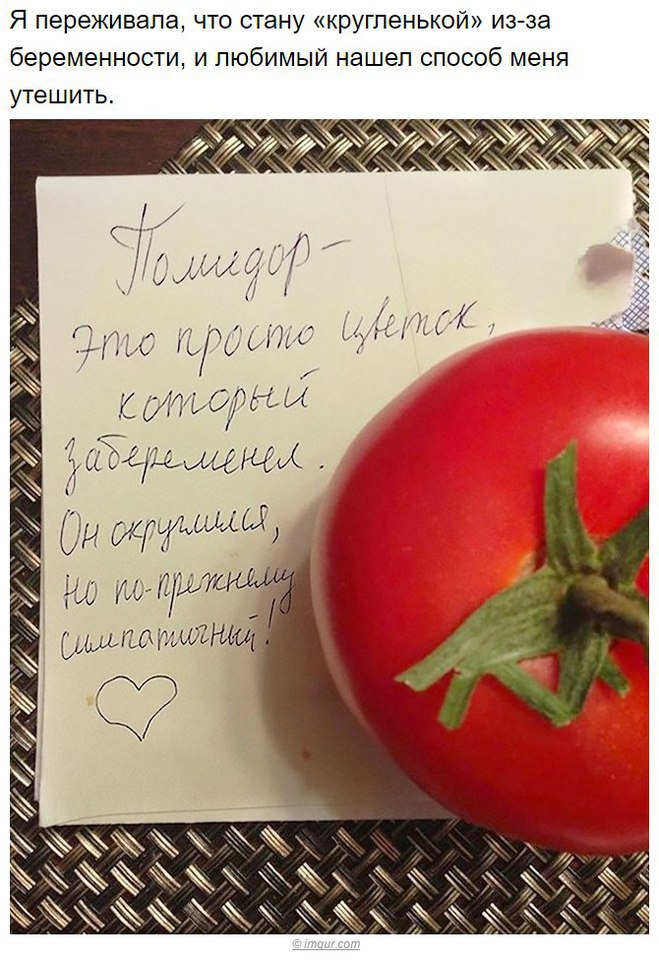 Я переживала, что стану «кругленькой» из-за
беременности, и любимый нашел способ меня
утешить.
Помидор –
это просто цветок,
который
забеременел.
Он округлился,
но по-прежнему
симпатичный!
© imgur.com